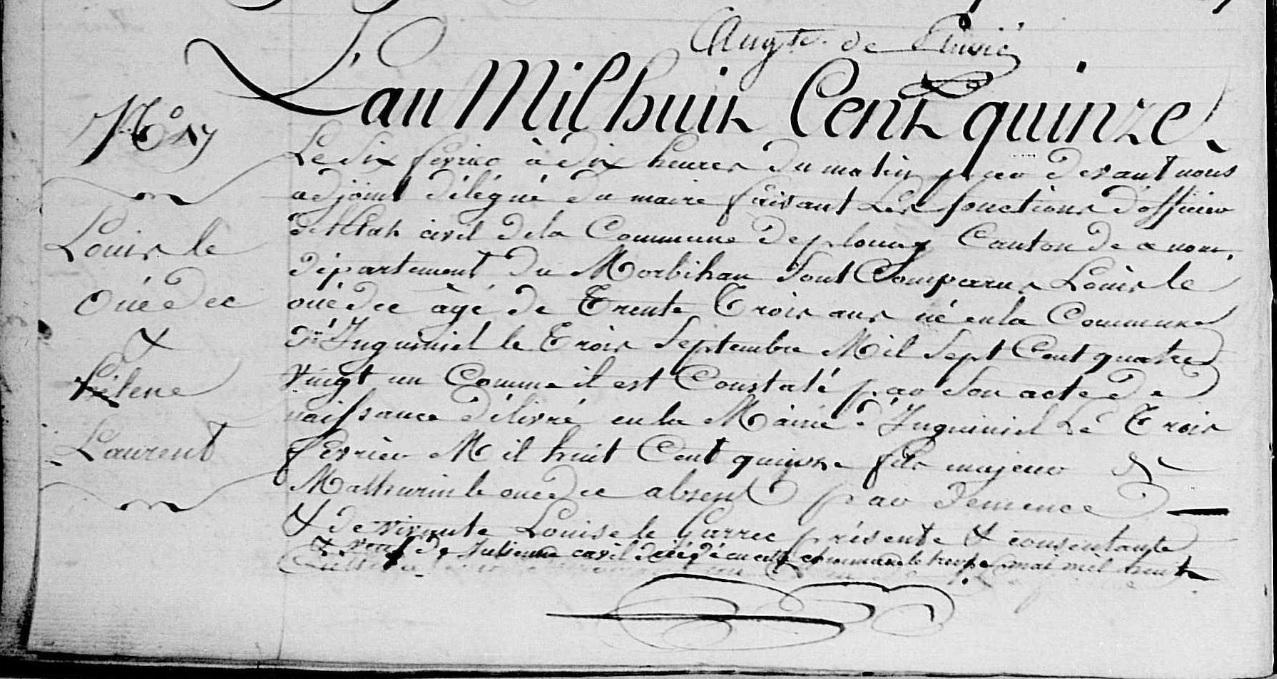 Augte. de
L'an Mil huit Cent quinze
N° 17
Louis le
ouédec
&
hélene
Laurent
Le Six fevrier à dix heures du matin par devant nous
adjoint délégué du maire faisant Les fonctions d'officier
de l'Etat civil de la Commune de plouay Canton de ce nom,
département du Morbihan Sont Comparus Louis le
ouédec âgé de Trente Trois ans né en la Commune
d'Inguiniel le Trois Septembre Mil Sept Cent quatre
vingt un Comme il est Constaté par Son acte de
naissance délivré en la Mairie d'Inguiniel Le Trois
fevrier Mil huit Cent quinze fils majeur de
Mathurin le ouedec absent par demence
& de vivante Louise le Garrec présente & consentante
& veuf de Julienne décédée en cette commune le treize mai mil huit